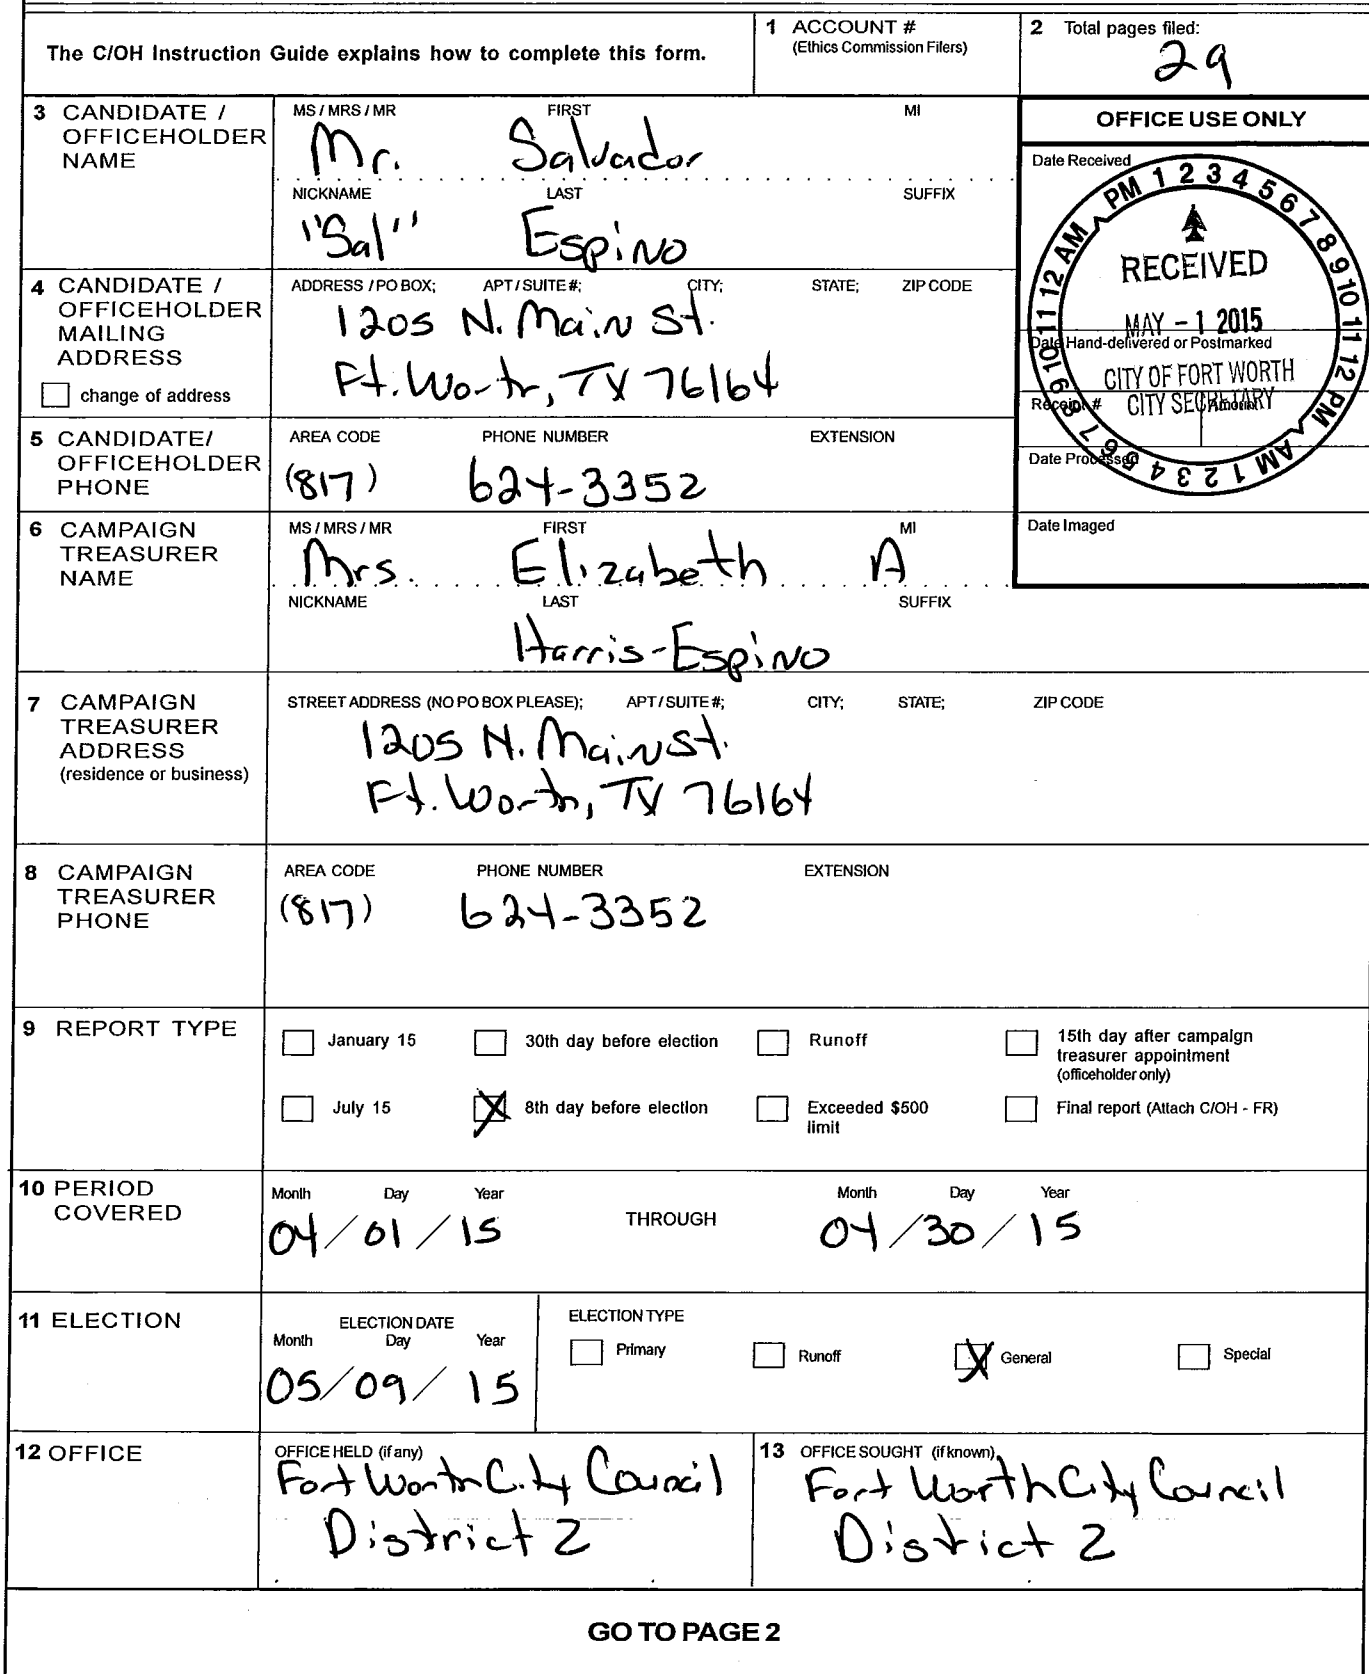 The C/OH Instruction Guide explains how to complete this form.
1 ACCOUNT #
(Ethics Commission Filers)
2 Total pages filed:
29
3 CANDIDATE /
OFFICEHOLDER
NAME
MS / MRS / MR FIRST MI
Mr. Salvador
NICKNAME LAST SUFFIX
"Sal" Espino
OFFICE USE ONLY
Date Received
12 AM PM 1 2 3 4 5 6 7 8 9 10 11 12 PM AM 1 2 3 4 5 6 7 8 9 10 11
RECEIVED
MAY - 1 2015
Date Hand-delivered or Postmarked
CITY OF FORT WORTH
CITY SECRETARY
Receipt # Amount
Date Processed
Date Imaged
4 CANDIDATE /
OFFICEHOLDER
MAILING
ADDRESS
change of address
ADDRESS / PO BOX; APT / SUITE #; CITY; STATE; ZIP CODE
1205 N. Main St.
Ft. Worth, TX 76164
5 CANDIDATE/
OFFICEHOLDER
PHONE
AREA CODE PHONE NUMBER EXTENSION
(817) 624-3352
6 CAMPAIGN
TREASURER
NAME
MS / MRS / MR FIRST MI
Mrs. Elizabeth A
NICKNAME LAST SUFFIX
Harris-Espino
7 CAMPAIGN
TREASURER
ADDRESS
(residence or business)
STREET ADDRESS (NO PO BOX PLEASE); APT / SUITE #; CITY; STATE; ZIP CODE
1205 N. Main St.
Ft. Worth, TX 76164
8 CAMPAIGN
TREASURER
PHONE
AREA CODE PHONE NUMBER EXTENSION
(817) 624-3352
9 REPORT TYPE
January 15 30th day before election Runoff 15th day after campaign
treasurer appointment
(officeholder only)
July 15 X 8th day before election Exceeded $500
limit
Final report (Attach C/OH - FR)
10 PERIOD
COVERED
Month Day Year Month Day Year
04/01/15 THROUGH 04/30/15
11 ELECTION
ELECTION DATE
Month Day Year
05/09/15
ELECTION TYPE
Primary Runoff X General Special
12 OFFICE
OFFICE HELD (if any)
Fort Worth City Council
District 2
13 OFFICE SOUGHT (if known)
Fort Worth City Council
District 2
GO TO PAGE 2